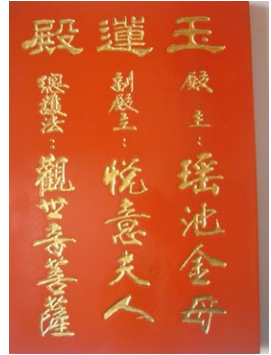 玉蓮殿
殿主：瑤池金母
副殿主：悅意夫人
總護法：觀世音菩薩